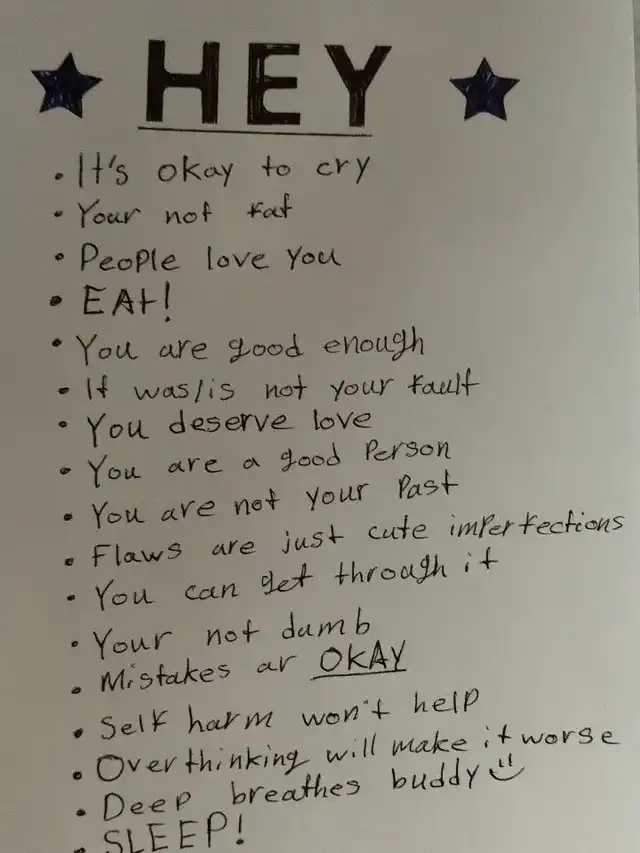 HEY
• It's okay to cry
• Your not fat
• People love you
• EAt!
• You are good enough
• It was/is not your fault
• You deserve love
• You are a good Person
• You are not your Past
• Flaws are just cute imperfections
• You can get through it
• Your not dumb
• Mistakes ar OKAY
• Self harm won't help
• Overthinking will make it worse
• Deep breathes buddy
• SLEEP!